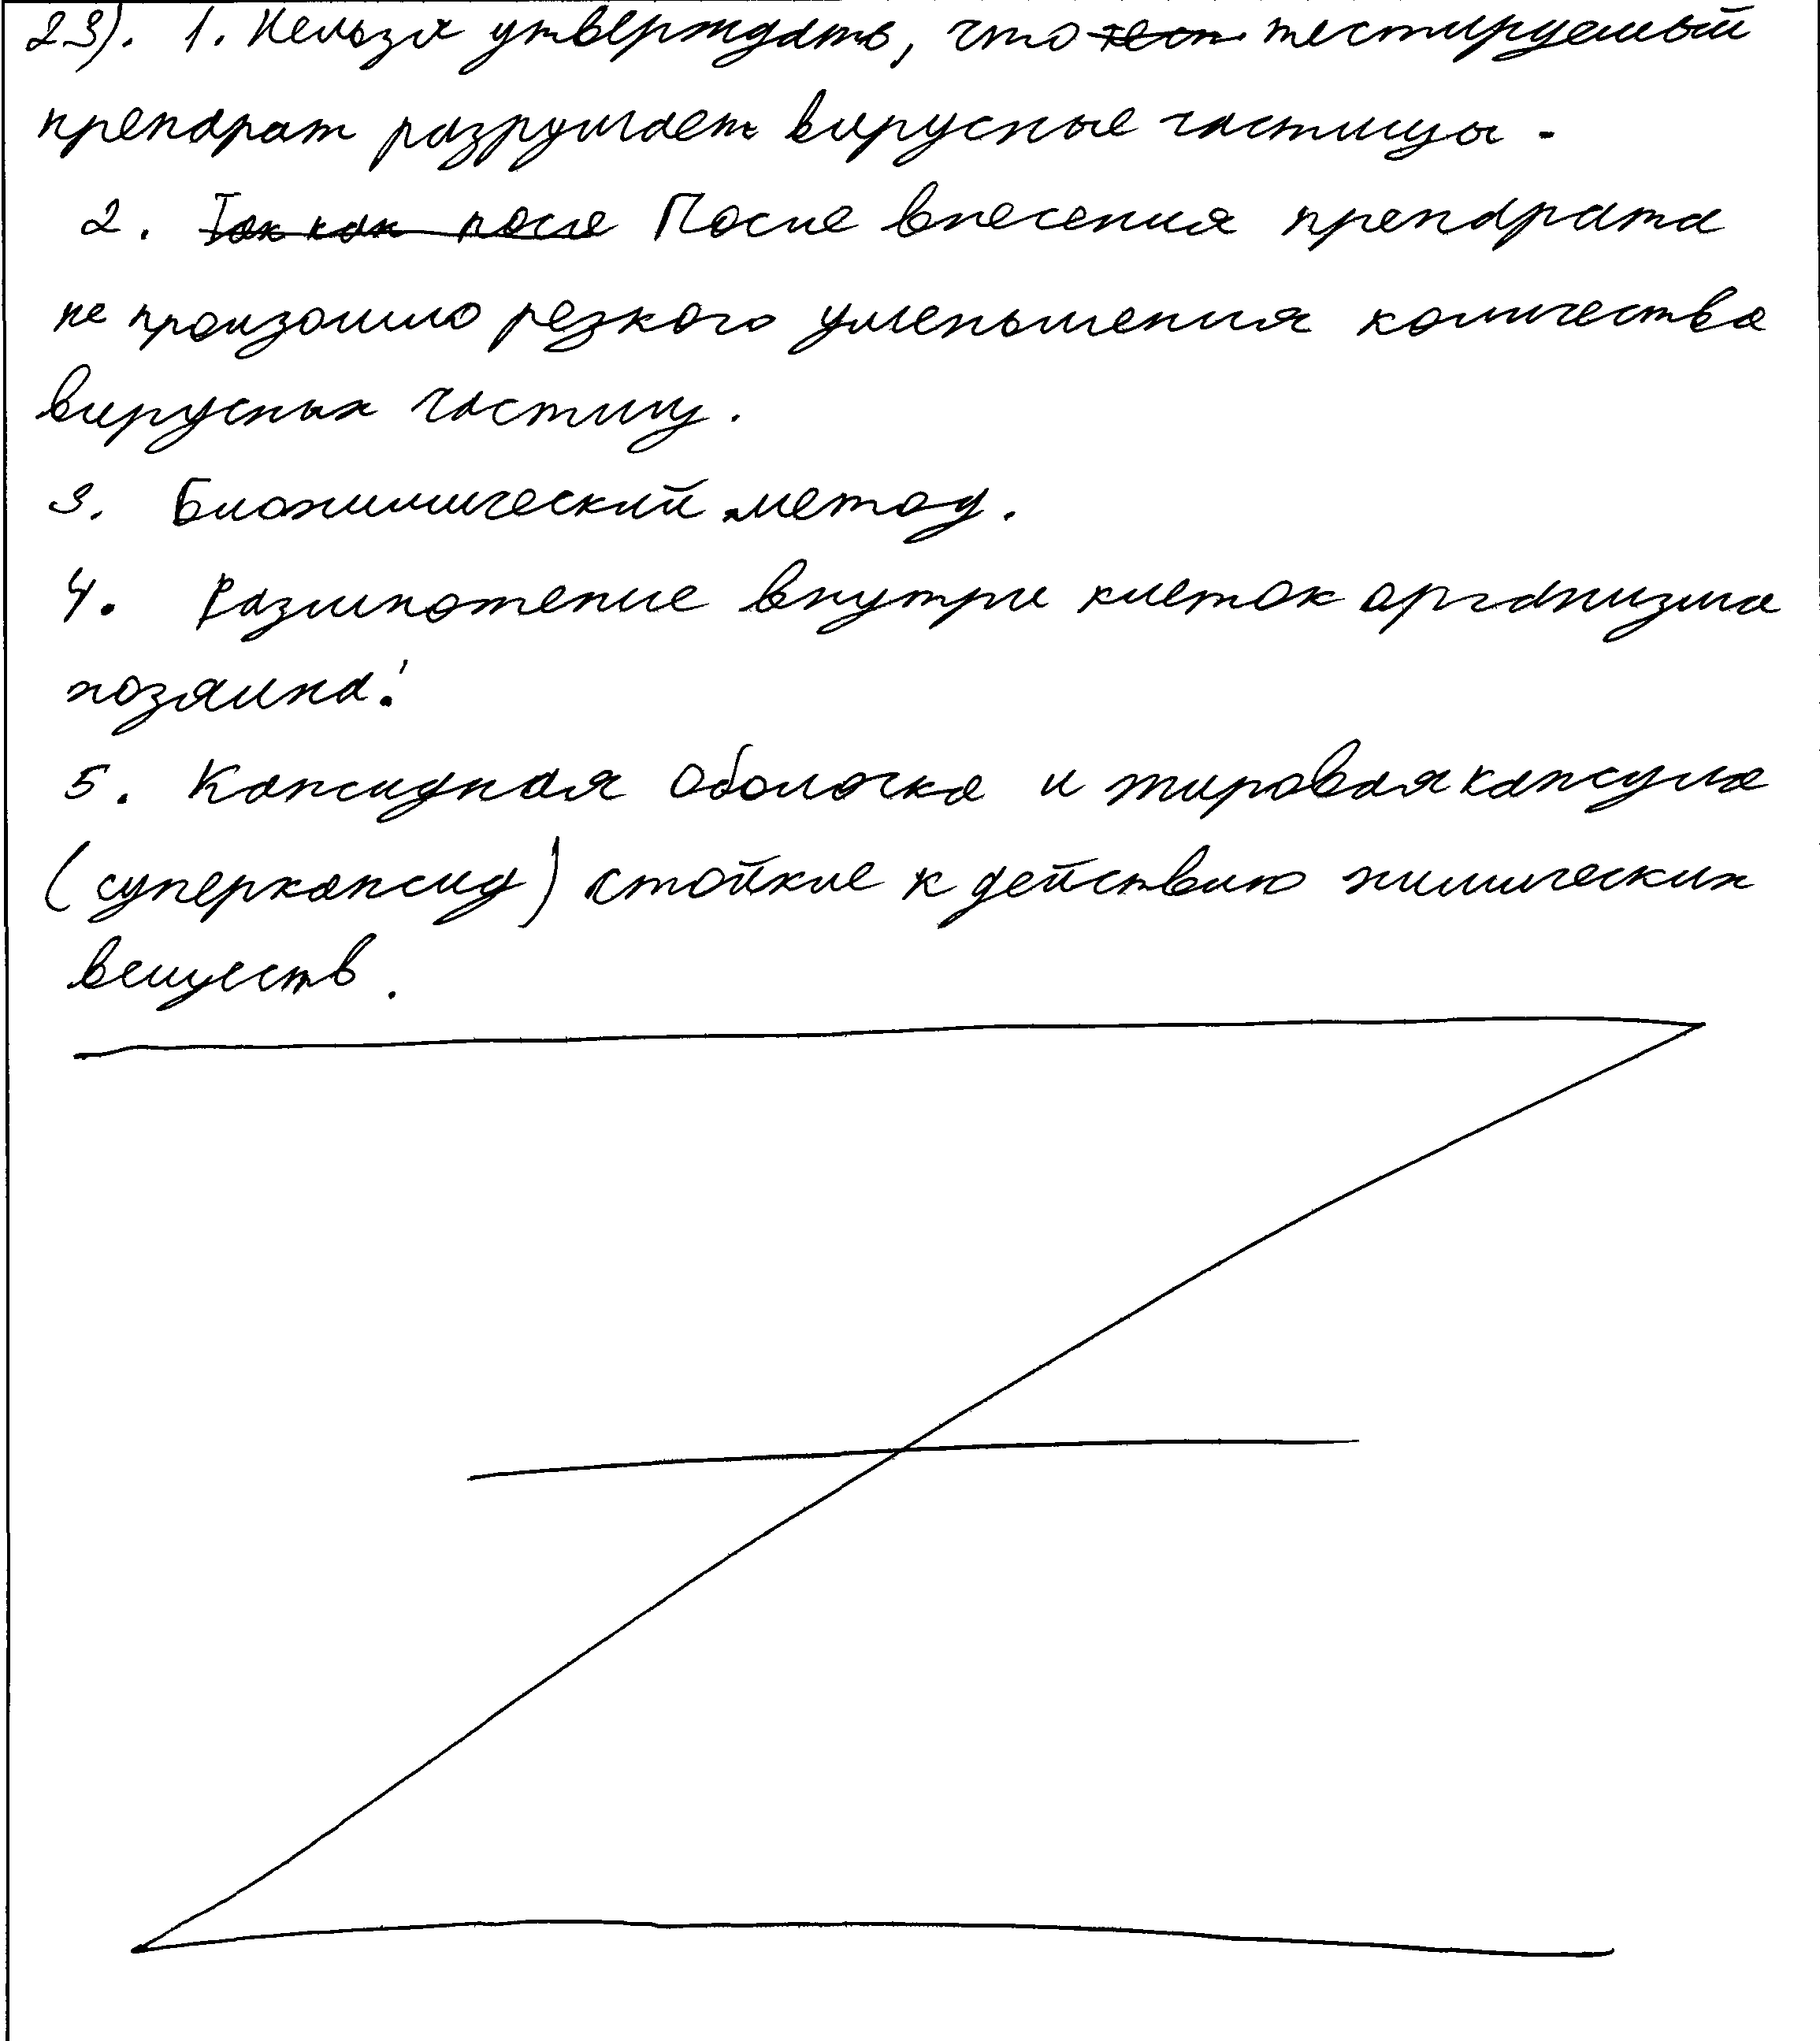 23). 1. Нельзя утверждать, что тест тестируемый
препарат разрушает вирусные частицы.
2. Так как после После внесения препарата
не произошло резкого уменьшения количества
вирусных частиц.
3. Биохимический метод.
4. Размножение внутри клеток организма
хозяина.
5. Капсидная оболочка и жировая капсула
(суперкапсид) стойкие к действию химических
веществ.